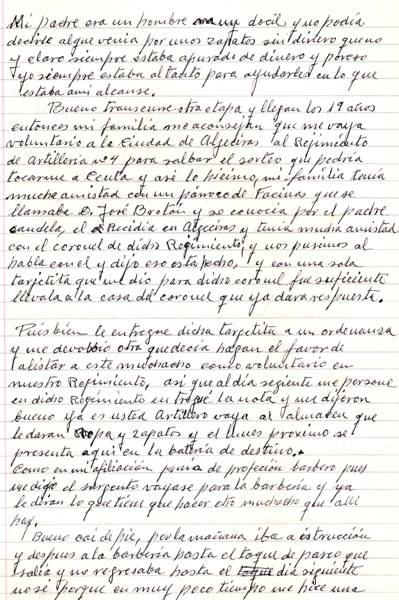 Mi padre era un hombre muy docil y no podía
decirle al que venia por unos zapatos sin dinero que no
y claro siempre estaba apurado de dinero y por eso
yo siempre estaba al tanto para ayudarles en lo que
estaba a mi alcanse.
Bueno transcurre otra etapa y llegan los 19 años
entonces mi familia me aconsejan que me vaya
voluntario a la Ciudad de Algeciras al Rejimiento
de Artilleria nº 4 para salbar el sorteo que podria
tocarme a Ceuta y asi lo hicimo, mi familia tenia
mucha amistad con un párroco de Facinas que se
llamaba D. José Bretón y se conocia por el padre
candela, el Recidia en Algeciras y tenia mucha amistad
con el coronel de dicho Regimiento, y nos pusimos al
habla con el y dijo eso esta hecho, y con una sola
tarjetita que me dio para dicho coronel fue suficiente
llevala a la casa del coronel que ya dara respueste.
Pués bien le entregue dicha targetita a un ordenanza
y me devolbio otra que decia hagan el favor de
alistar a este muchacho como voluntario en
nuestro Regimiento, asi que al dia segiente me persone
en dicho Regimiento entregué la nota y me dijeron
bueno ya es usted Artillero vaya al almacen que
le daran Ropa y zapatos y el lunes proximo se
presenta aqui en la bateria de destino.
Como en mi afiliación ponia de profeción barbero pues
me dijo el sargento vayase para la barberia y ya
le diran lo que tiene que hacer otro muchacho que alli
hay.
Bueno cai de pie, por la mañana iba a istrucción
y despues a la barberia hasta el toque de paseo que
salia y no regresaba hasta el dia siguiente
no sé porque en muy poco tiempo me hice una